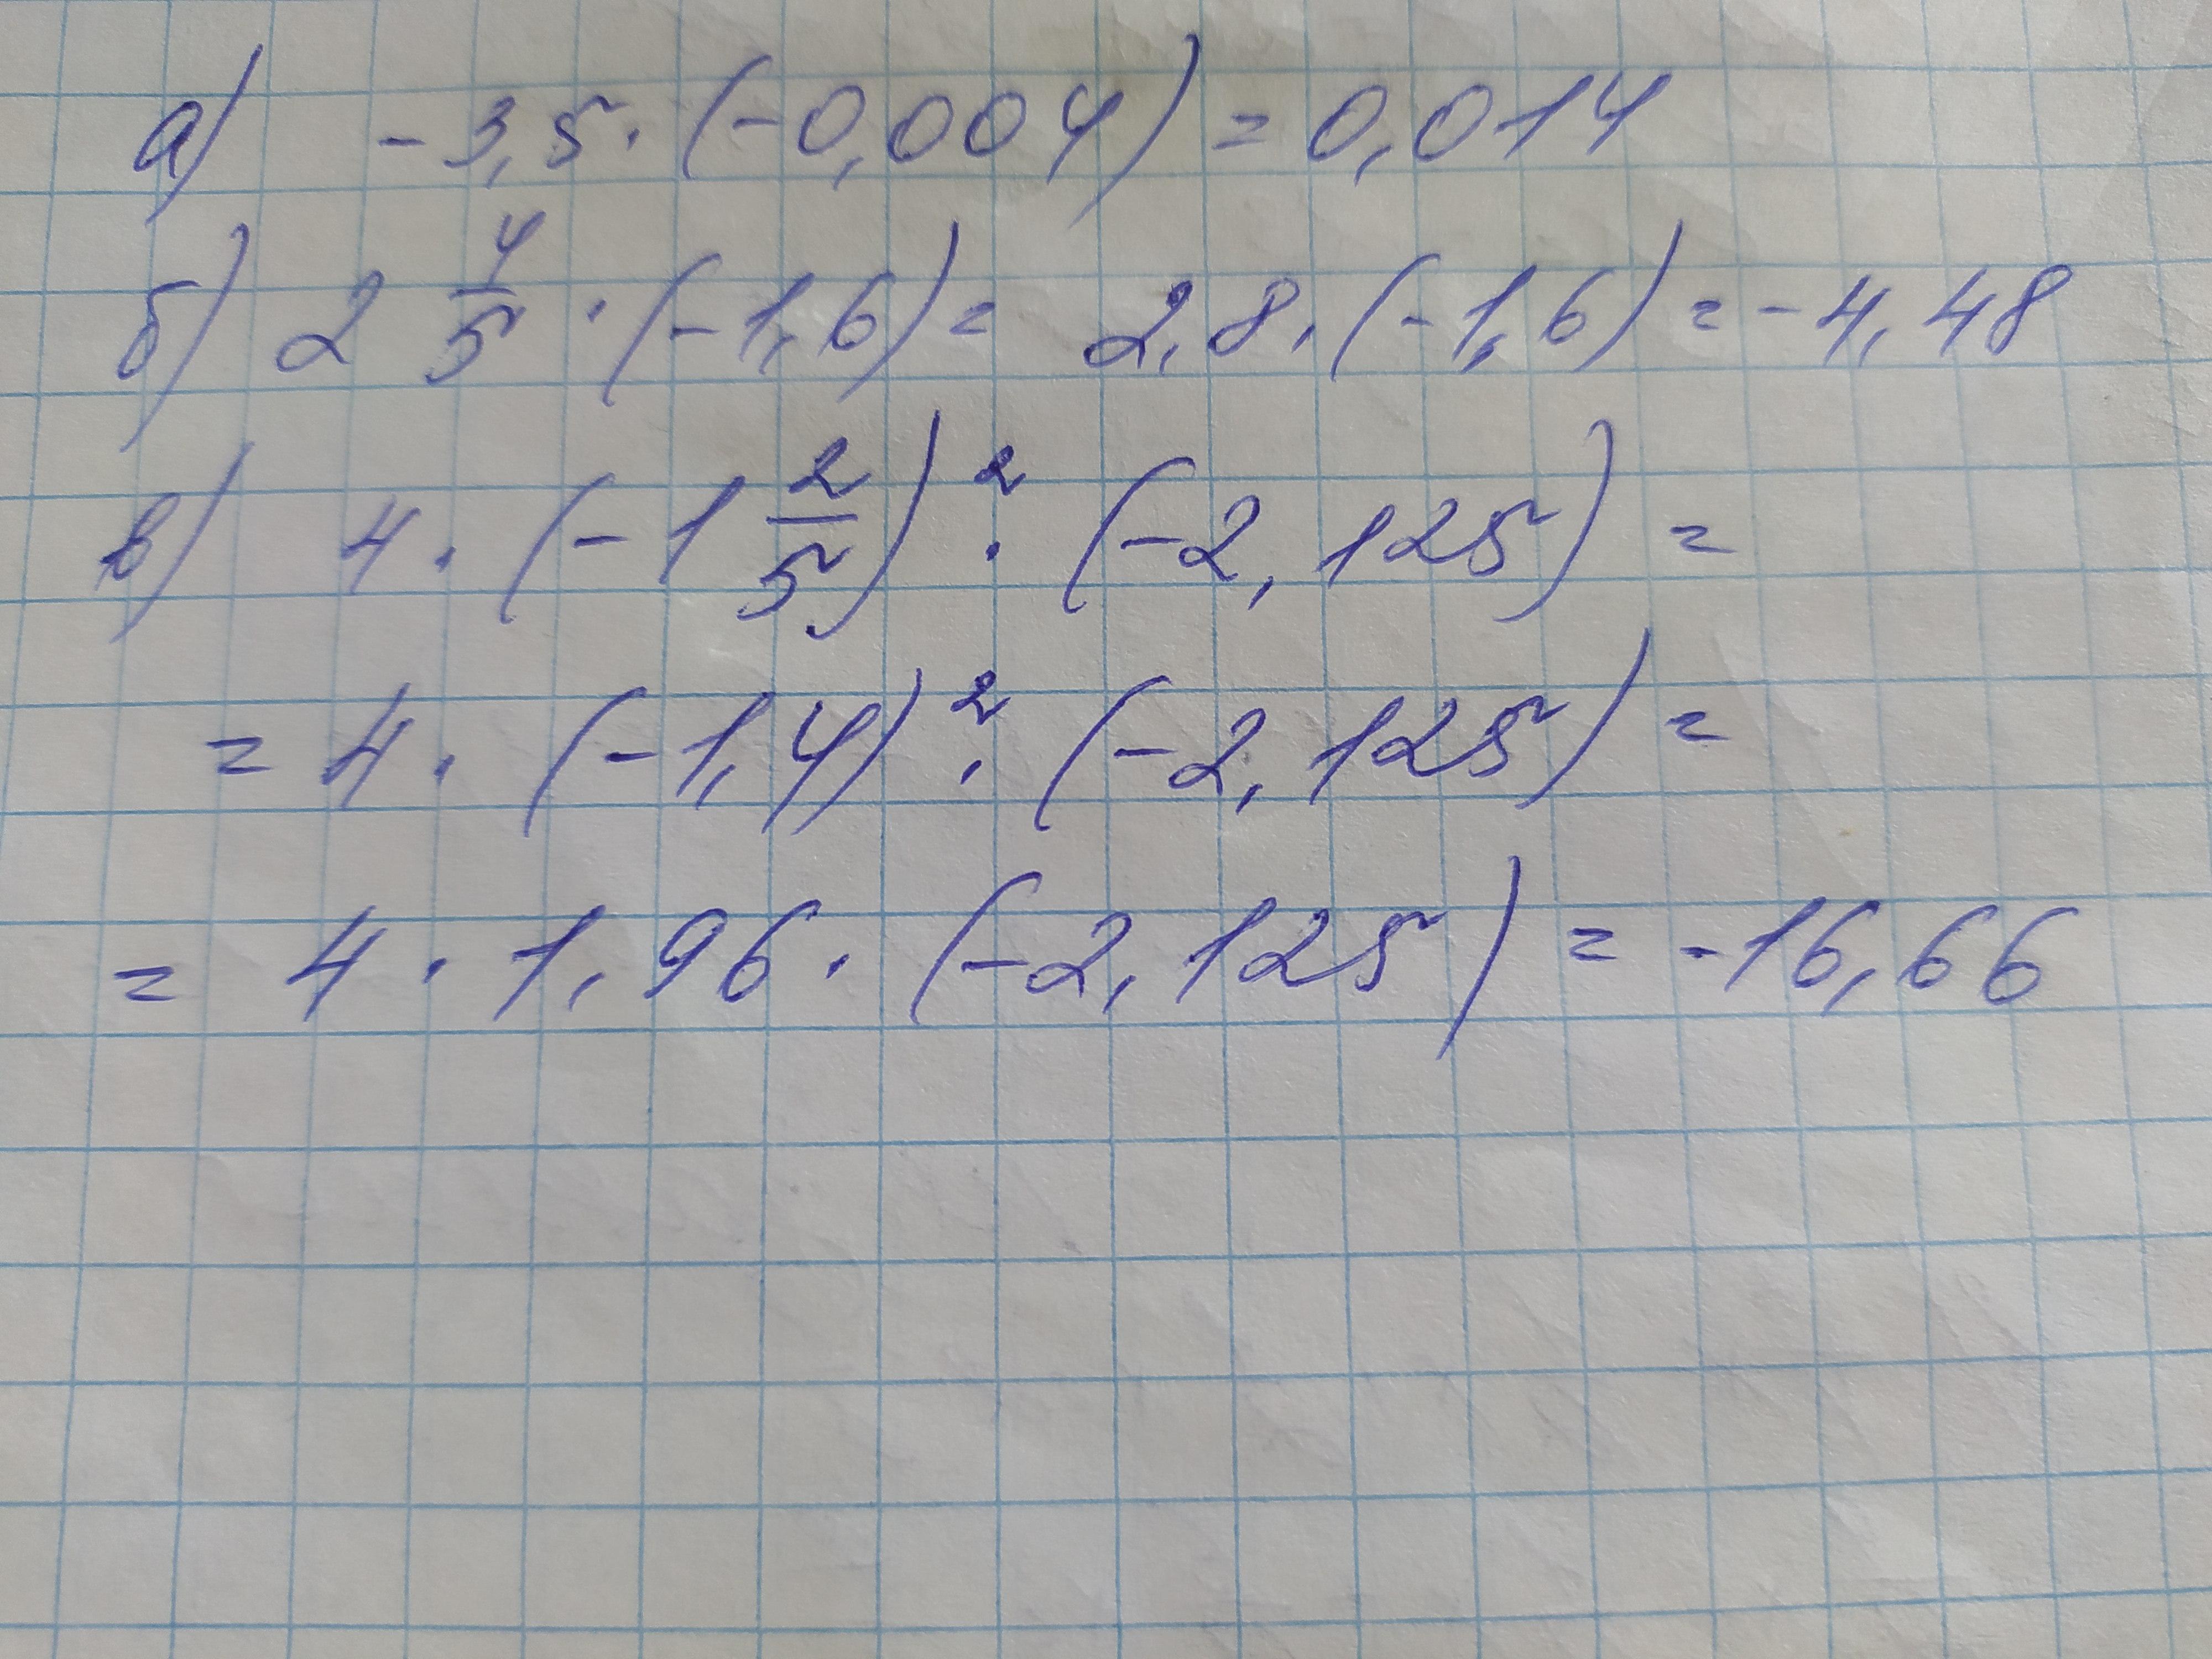 а) -3,5 · (-0,004) = 0,014
б) 2 4/5 · (-1,6) = 2,8 · (-1,6) = -4,48
в) 4 · (-1 2/5)² · (-2,125) =
= 4 · (-1,4)² · (-2,125) =
= 4 · 1,96 · (-2,125) = -16,66